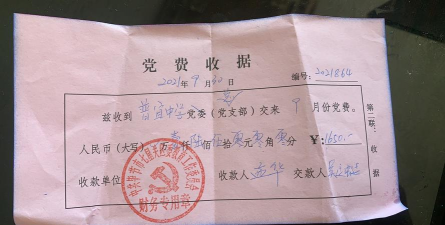 党费收据
2021年9月30日 编号:2021864
兹收到 普宜中学 党委（党支部）交来 9 月份党费。
人民币（大写） 万 壹仟 陆佰 伍拾 零元 零角 零分 ¥:1650.-
收款单位 收款人 志华 交款人
第二联：收据
财务专用章